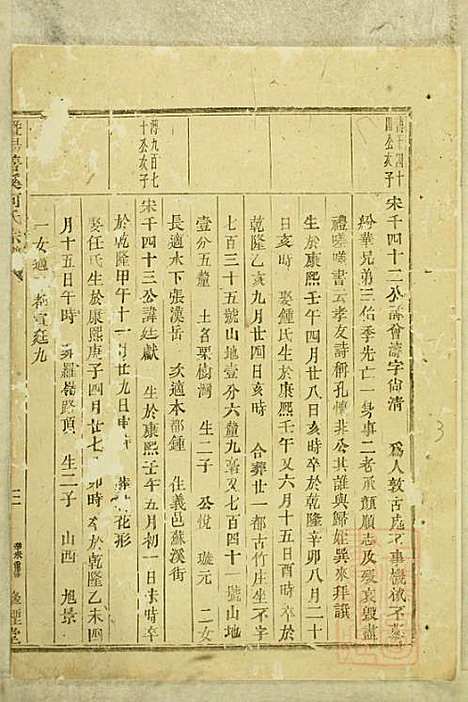 傅千四十四公次子
宋千四十二公諱會濤字尙清 爲人敦古處不事機械不慕
紛華兄弟三伯季先亡一勢事二老承顏順志及殁哀毀盡
禮嗟嗟書云孝友詩稱孔懷非公其誰與歸姪巽來拜譔
生於康熙壬午四月廿八日亥時卒於乾隆辛卯八月二十
日亥時 娶鍾氏生於康熙壬午又六月十五日酉時卒於
乾隆乙亥九月廿四日亥時 合葬廿一都古竹庄坐不字
七百三十五號山地壹分六釐九毫又七百四十一號山地
壹分五釐 土名栗樹灣 生二子 公悅 璇元 二女
長適水下張漢岳 次適本都鍾 住義邑蘇溪街
傅九百七十公次子
宋千四十三公諱廷獻 生於康熙壬午五月初一日未時卒
於乾隆甲午十一月廿九日申時 葬 花形
娶任氏生於康熙庚子四月廿七 卯時 卒於乾隆乙未四
月十五日午時 羅嶺路頂 生二子 山西 旭景
一女適 楊宣廷九
暨陽 溪何氏宗